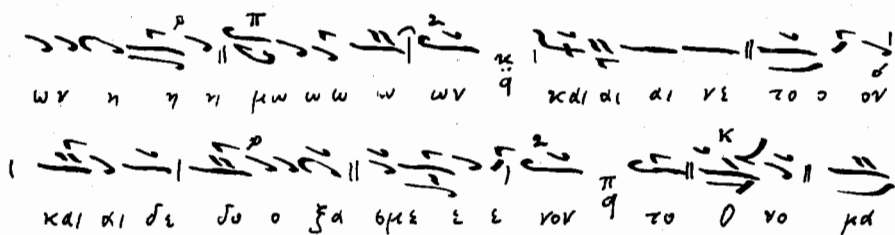 ων η η η μω ω ω ω ων και αι αι νε το ο ον
και αι δε δο ο ξα σμε ε ε νον το ο νο μα